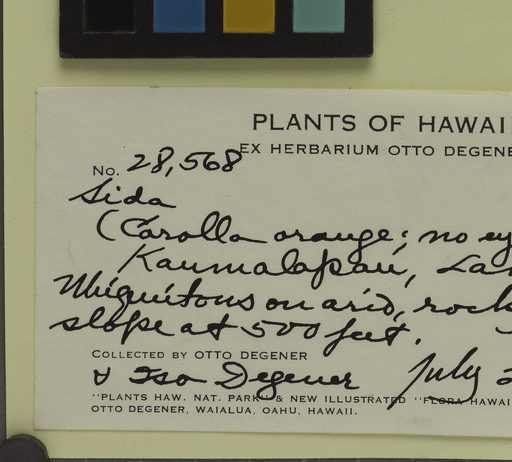 PLANTS OF HAWAII
EX HERBARIUM OTTO DEGENE
No. 28,568
Sida
(Corolla orange; no ey
Kaumalapau, Lan
Ubiquitous on arid, rock
slope at 500 feet.
COLLECTED BY OTTO DEGENER
& Isa Degener July 2
"PLANTS HAW. NAT. PARK" & NEW ILLUSTRATED "FLORA HAWAI
OTTO DEGENER, WAIALUA, OAHU, HAWAII.